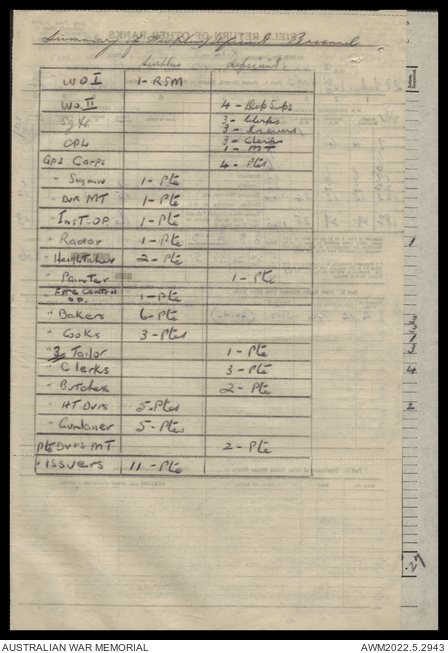 Summary of Surplus / Deficient Personnel
Surplus deficient
WO I 1 - RSM
WO II 4 - Dep Sups
Sgt. 3 - Clerks
3 - Issuers
CPL 3 - Clerks
1 - MT
Gp2 Corps 4 - Ptes
" Sigmn 1 - Pte
" Dvr MT 1 - Pte
" Inst. OP 1 - Pte
" Radar 1 - Pte
" Heighttaker 2 - Pte
" Painter 1 - Pte
" Fire Control
OP. 1 - Pte
" Bakers 6 - Pte
" Cooks 3 - Ptes
" Tailor 1 - Pte
" Clerks 3 - Pte
" Butchers 2 - Pte
" HT Dvrs 5 - Ptes
" Gunlayer 5 - Ptes
Pte Dvrs MT 2 - Pte
" Issuers 11 - Pte
AUSTRALIAN WAR MEMORIAL AWM2022.5.2943